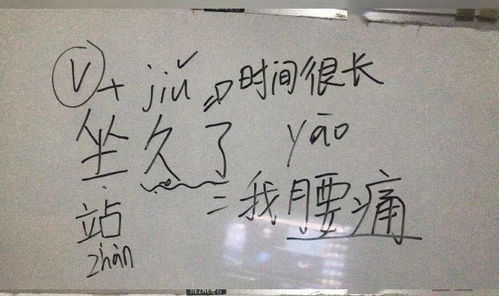 Ⓥ + jiǔ ⇒ 时间很长
坐久了 yāo
站 = 我腰痛
zhàn